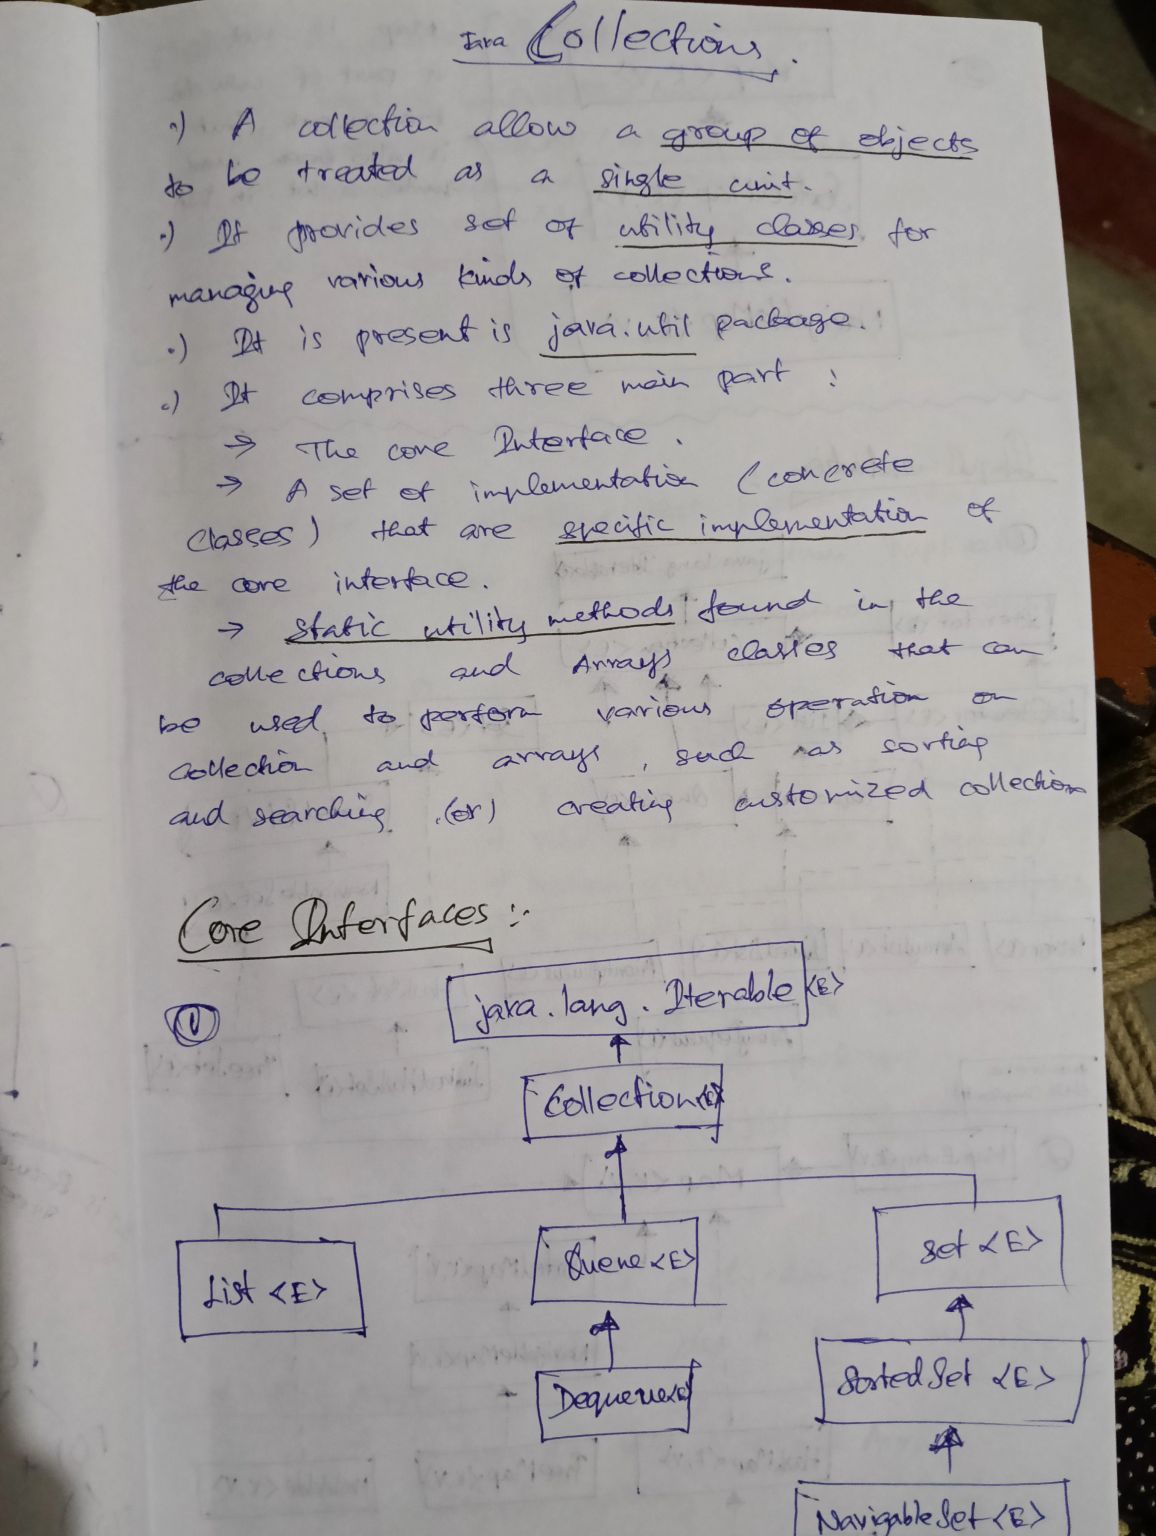 Java Collections.
•) A collection allow a group of objects
to be treated as a single unit.
•) It provides set of utility classes for
managing various kinds of collections.
•) It is present is java.util package.
•) It comprises three main part :
→ The core Interface.
→ A set of implementation (concrete
classes) that are specific implementation of
the core interface.
→ static utility methods found in the
collections and Arrays classes that can
be used to perform various operation on
collection and arrays, such as sorting
and searching (or) creating customized collection
Core Interfaces :-
①
java.lang.Iterable <E>
Collection<E>
List <E>
Queue <E>
Set <E>
Dequeue<E>
Sorted Set <E>
Navigable Set <E>